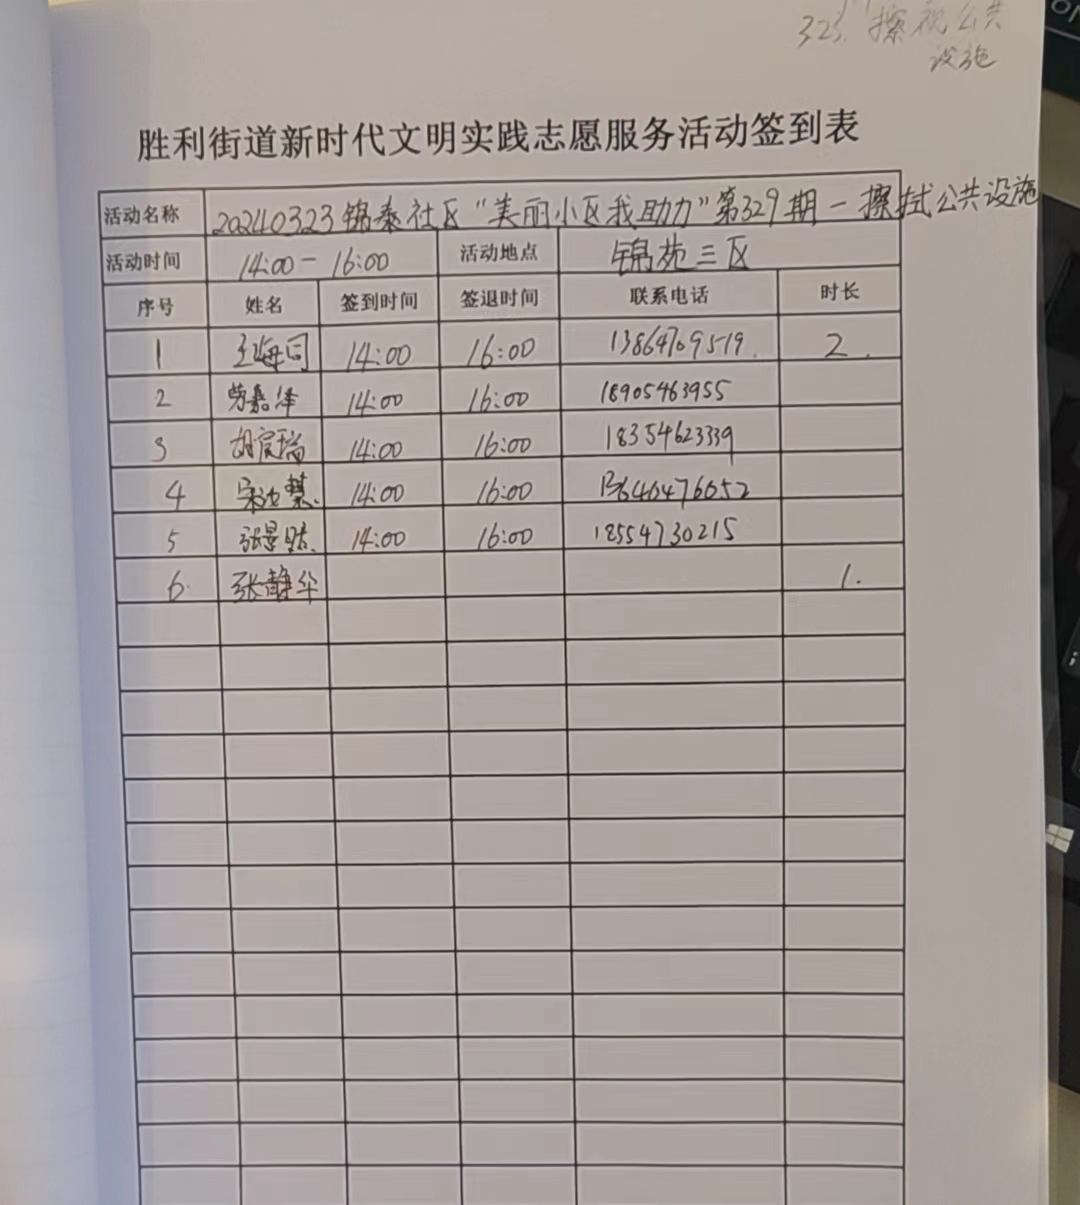 323. 擦视公共
设施
胜利街道新时代文明实践志愿服务活动签到表
活动名称 20240323锦泰社区“美丽小区我助力”第329期-擦拭公共设施
活动时间 14:00-16:00 活动地点 锦苑三区
序号 姓名 签到时间 签退时间 联系电话 时长
1 王海同 14:00 16:00 13864709519. 2.
2 劳嘉泽 14:00 16:00 18905463955
3 胡宸瑞 14:00 16:00 18354623339
4 14:00 16:00 13640476052
5 14:00 16:00 18554730215
6. 张静华 1.